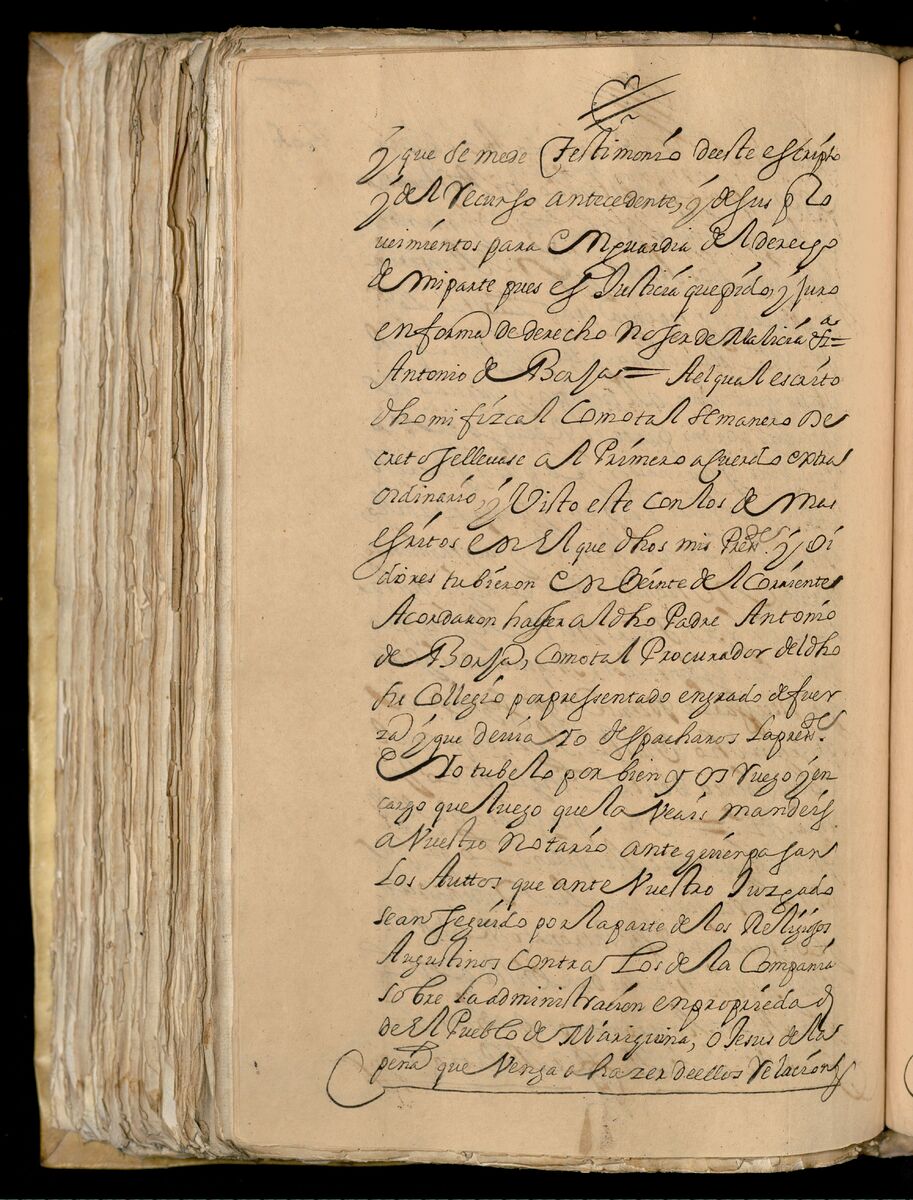 y que se mede Testimonio deeste escripto
y del recurso antecedente, y desus pro
ueimientos para enguardia del derecho
de miparte pues es Justicia que pido, y juro
enforma de derecho no ser de Malicia &a fi=
Antonio de Borja = Ael qual escrito
dho mi fizcal Como tal semanero De
creto sellevase al Primero acuerdo extra
ordinario, y Visto este con los de mas
escritos en El que dhos mis Presde. y Oi
dores tubieron en Veinte del Corriente
Acordaron hauer al dho Padre Antonio
de Borja, Como tal Procurador del dho
su Collegio por pressentado engrado de fuer
za y que deuia Yo despacharos la presde.
E Yo tubelo por bien y os ruego y en
cargo que luego que la Veais mandeis
a Vuestro Notario ante quien pasan
Los Auttos que ante Vuestro Juzgado
sean seguido por la parte de los Religiosos
Augustinos Contra Los de la Compañia
sobre La administracion enpropiedad
de El Pueblo de Mariquina, o Jesus de la
peña que Venga a hazer deellos relacion